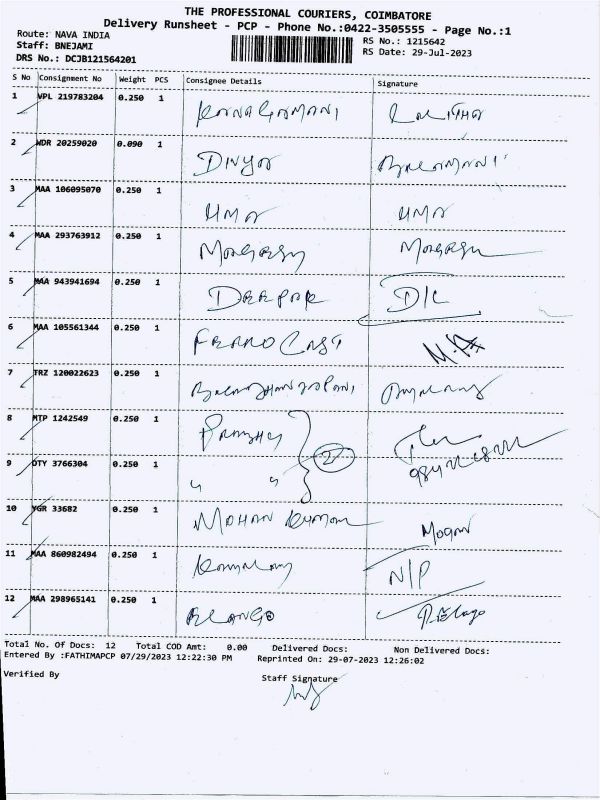 THE PROFESSIONAL COURIERS, COIMBATORE
Delivery Runsheet - PCP - Phone No.:0422-3505555 - Page No.:1
Route: NAVA INDIA
Staff: BNEJAMI
DRS No.: DCJB121564201
RS No.: 1215642
RS Date: 29-Jul-2023
S No Consignment No Weight PCS Consignee Details Signature
1 WPL 219783204 0.250 1 Lalitha
2 WDR 20259020 0.090 1 DIVYA BALAMANI
3 MAA 106095070 0.250 1 UMA UMA
4 MAA 293763912 0.250 1
5 MAA 943941694 0.250 1 DEEPAK D/L
6 MAA 105561344 0.250 1 FERRO CAST
7 TRZ 120022623 0.250 1
8 MTP 1242549 0.250 1 PRABHU 2
9 OTY 3766304 0.250 1 " "
10 YGR 33682 0.250 1 MOHAN KUMAR MOHAN
11 MAA 860982494 0.250 1 N/P
12 MAA 298965141 0.250 1 ELANGO P.Elago
Total No. Of Docs: 12 Total COD Amt: 0.00 Delivered Docs: Non Delivered Docs:
Entered By :FATHIMAPCP 07/29/2023 12:22:30 PM Reprinted On: 29-07-2023 12:26:02
Verified By Staff Signature